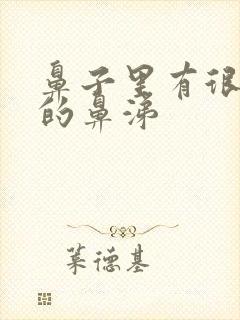 鼻子里有很
的鼻涕
莱德基